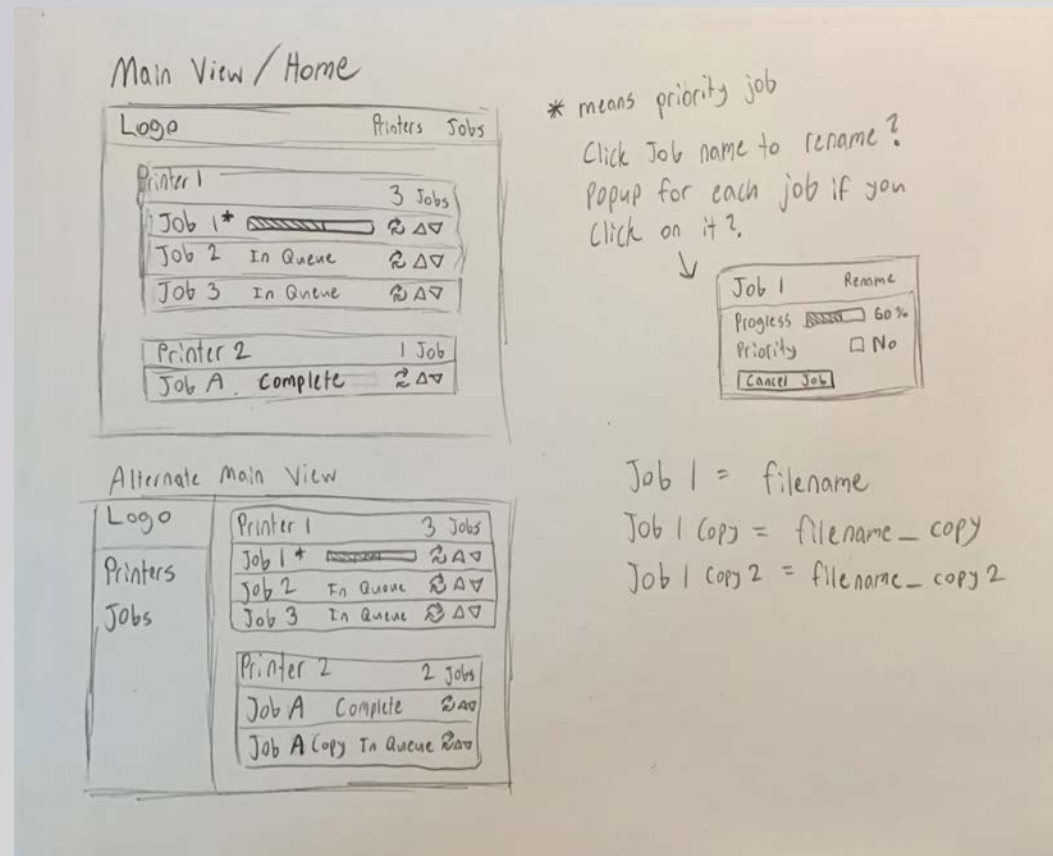 Main View / Home
Logo Printers Jobs
Printer 1
3 Jobs
Job 1*
Job 2 In Queue
Job 3 In Queue
Printer 2 1 Job
Job A. Complete
* means priority job
Click Job name to rename?
Popup for each job if you
Click on it?
Job 1 Rename
Progress 60%
Priority No
Cancel Job
Alternate Main View
Logo
Printers
Jobs
Printer 1 3 Jobs
Job 1*
Job 2 In Queue
Job 3 In Queue
Printer 2 2 Jobs
Job A Complete
Job A Copy In Queue
Job 1 = filename
Job 1 Copy = filename_copy
Job 1 Copy 2 = filename_copy2